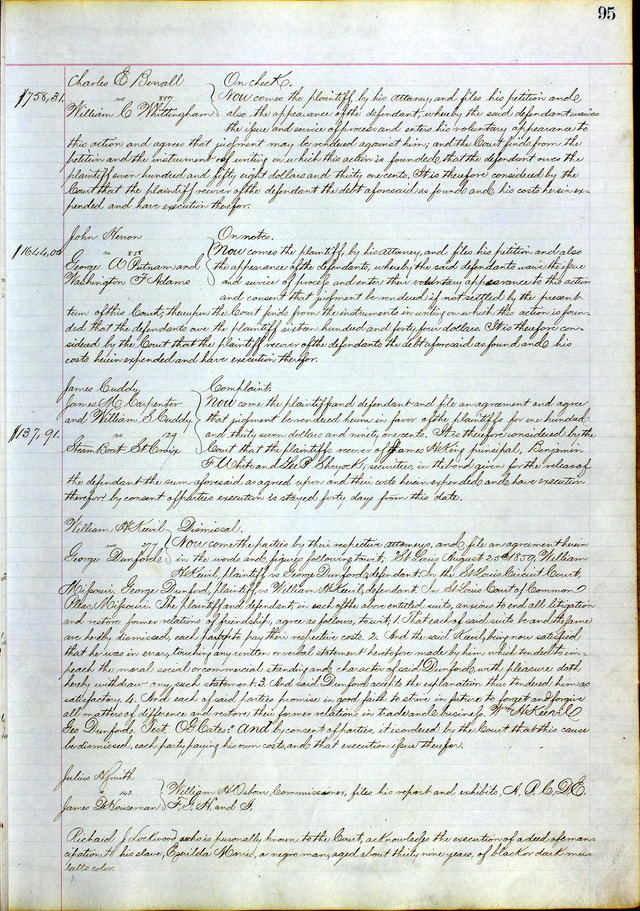 95
Charles E Berrall On check.
$758,31. vs 857 Now comes the plaintiff, by his attorney, and files his petition and
William C Whittingham also the appearance of the defendant, whereby the said defendant waives
the issue and service of process and enters his voluntary appearance to
this action and agrees that judgment may be rendered against him; and the Court finds from the
petition and the instrument of writing on which this action is founded, that the defendant owes the
plaintiff seven hundred and fifty eight dollars and thirty one cents. It is therefore considered by the
Court that the plaintiff recover of the defendant the debt aforesaid as found and his costs herein ex-
pended and have execution therefor.
John Henon On notes.
$1644,00 vs 858 Now comes the plaintiff, by his attorney, and files his petition and also
George W Putnam and the appearance of the defendants, whereby the said defendants waive the issue
Washington F Adams and service of process and enter their voluntary appearance to this action
and consent that judgment be rendered if not settled by the present
term of this Court; thereupon the Court finds from the instruments in writing on which this action is foun-
ded that the defendants owe the plaintiff sixteen hundred and forty four dollars. It is therefore con-
sidered by the Court that the plaintiff recover of the defendants the debt aforesaid as found and his
costs herein expended and have execution therefor.
James Cuddy Complaint.
James M Carpenter Now come the plaintiff and defendant and file an agreement and agree
and William S Cuddy that judgment be rendered herein in favor of the plaintiffs for one hundred
$137,91. vs 29 and thirty seven dollars and ninety one cents. It is therefore considered by the
Steam Boat St Croix Court that the plaintiffs recover of James A King principal, Benjamin
F White and Lee P Shryock, securities, in the bond given for the release of
the defendant the sum aforesaid as agreed upon and their costs herein expended and have execution
therefor by consent of parties execution is stayed forty days from this date.
William McKeevil Dismissal.
vs 277 Now come the parties by their respective attorneys, and file an agreement herein
George Dunford in the words and figures following to wit, "St Louis August 25th 1850, William
McKeevil, plaintiff vs George Dunford, defendant. In the St Louis Circuit Court,
Missouri, George Dunford, plaintiff, vs William McKeevil, defendant. In St Louis Court of Common
Pleas, Missouri. The plaintiff and defendant, in each of the above entitled suits, anxious to end all litigation
and restore former relations of friendship, agree as follows, to wit, 1 That each of said suits be and the same
are hereby dismissed, each party to pay their respective costs. 2. And the said Keevil, being now satisfied
that he was in error, touching any written or verbal statement heretofore made by him which tended to im-
peach the moral social or commercial standing and character of said Dunford, with pleasure doth
hereby withdraw any such statement. 3. And said Dunford accepts the explanation thus tendered him as
satisfactory. 4. And each of said parties promise in good faith to strive in future to forget and forgive
all matters of difference and restore their former relations in trade and business. Wm McKeevil
Geo Dunford. Test, O G Cates." And by consent of parties, it is ordered by the Court that this cause
be dismissed, each party paying his own costs, and that execution issue therefor.
Julius A Smith
vs 143 William A Osbow, Commissioner, files his report and exhibits, A, B, C, D, E,
James D Houseman F, G, H and I.
Richard J Lockwood who is personally known to the Court, acknowledges the execution of a deed of eman-
cipation to his slave, Morris, a negro man, aged about thirty nine years, of black or dark mu-
latto color.